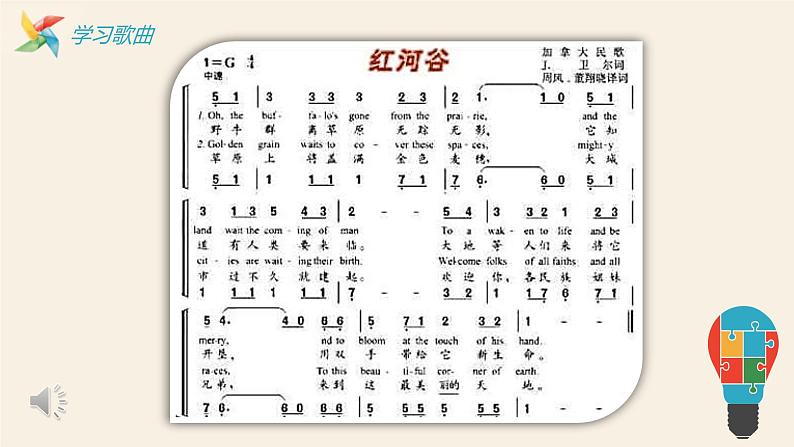 学习歌曲
红河谷
1=G 4/4
中速
加拿大民歌
J. 卫尔词
周风、董翔晓译词
5 1 3 3 3 3 2 3 2 1· 1 0 5 1
1. Oh, the buf- fa-lo's gone from the prai- rie, and the
野牛群 离草原 无踪无影, 它知
2. Gol-den grain waits to co- ver these spa- ces, might-y
草原上 将盖满 金色麦穗, 大城
5 1 1 1 1 1 7 1 7 6· 6 0 5 1
3 1 3 5 4 3 2 - - 5 4 3 3 2 1 2 1
land wait the com- ing of man To a wak- en to life and be
道有人类要来临。 大地等人们来将它
cit- ies are wait-ing their birth. Wel-come folks of all faiths and all
市过不久就建起。 欢迎你,各民族姐妹
1 1 1 1 1 1 7 - - 7 6 1 1 7 6 7 1
5 4· 4 0 6 6 5 7 1 2 3 2 1 - -
mer-ry, nd to bloom at the touch of his hand.
开垦, 用双手带给它新生命。
ra-ces, To this beau- ti-ful cor- ner of earth.
兄弟, 来到这最美丽的天地。
7 6· 6 0 6 6 5 5 5 5 5 5 1 - -